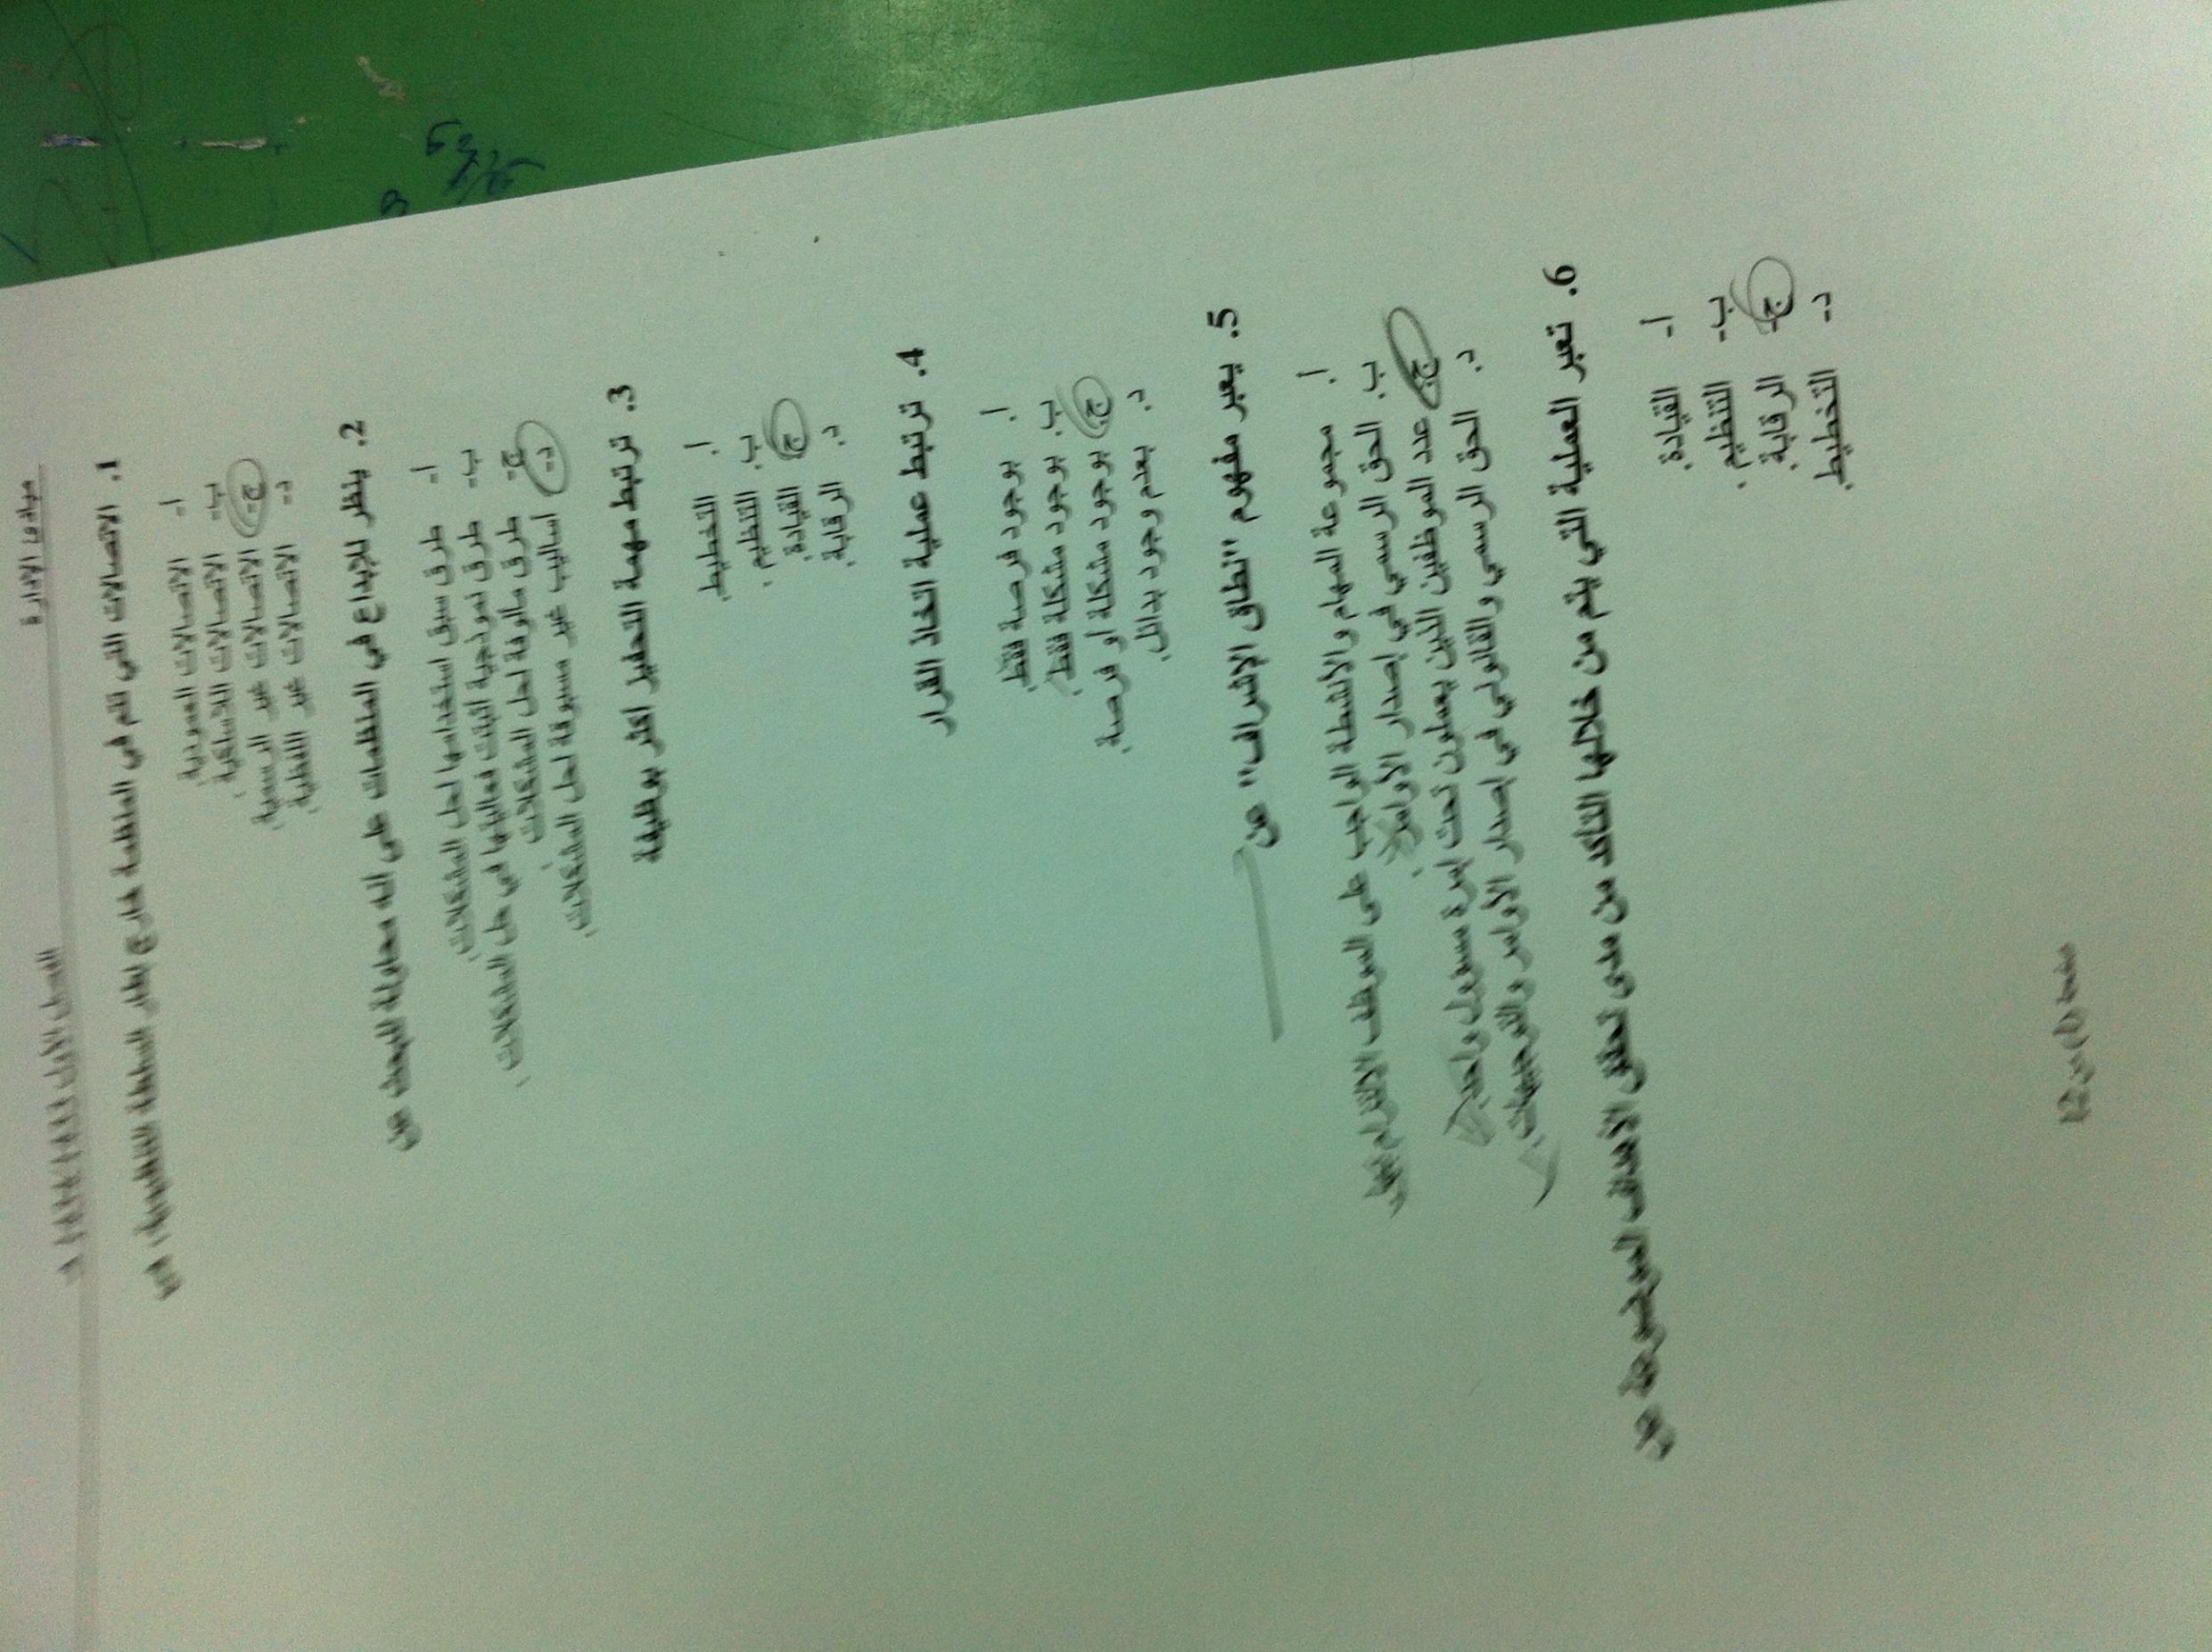 مبادئ الإدارة
الفصل الأول
1. الاتصالات التي تتم في المنظمة خارج إطار السلطة التنظيمية هي
أ- الاتصالات العمودية
ب- الاتصالات اللاسلكية
ج- الاتصالات غير الرسمية
د- الاتصالات غير اللفظية
2. ينظر للإبداع في المنظمات على انه محاولة للبحث عن
أ- طرق سبق استخدامها لحل المشكلات
ب- طرق نموذجية اثبتت فعاليتها في حل المشكلات
ج- طرق مألوفة لحل المشكلات
د- اساليب غير مسبوقة لحل المشكلات
3. ترتبط مهمة التحفيز اكثر بوظيفة
أ. التخطيط
ب. التنظيم
ج. القيادة
د. الرقابة
4. ترتبط عملية اتخاذ القرار
أ. بوجود فرصة فقط
ب. بوجود مشكلة فقط
ج. بوجود مشكلة أو فرصة
د. بعدم وجود بدائل
5. يعبر مفهوم "نطاق الإشراف" عن
أ. مجموعة المهام والأنشطة الواجب على الموظف الالتزام بها.
ب. الحق الرسمي في إصدار الأوامر.
ج. عدد الموظفين الذين يعملون تحت إمرة مسؤول واحد.
د. الحق الرسمي والقانوني في إصدار الأوامر والتوجيهات.
6. تعبر العملية التي يتم من خلالها التأكد من مدى تحقق الأهداف الموضوعة عن
أ- القيادة
ب- التنظيم
ج- الرقابة
د- التخطيط